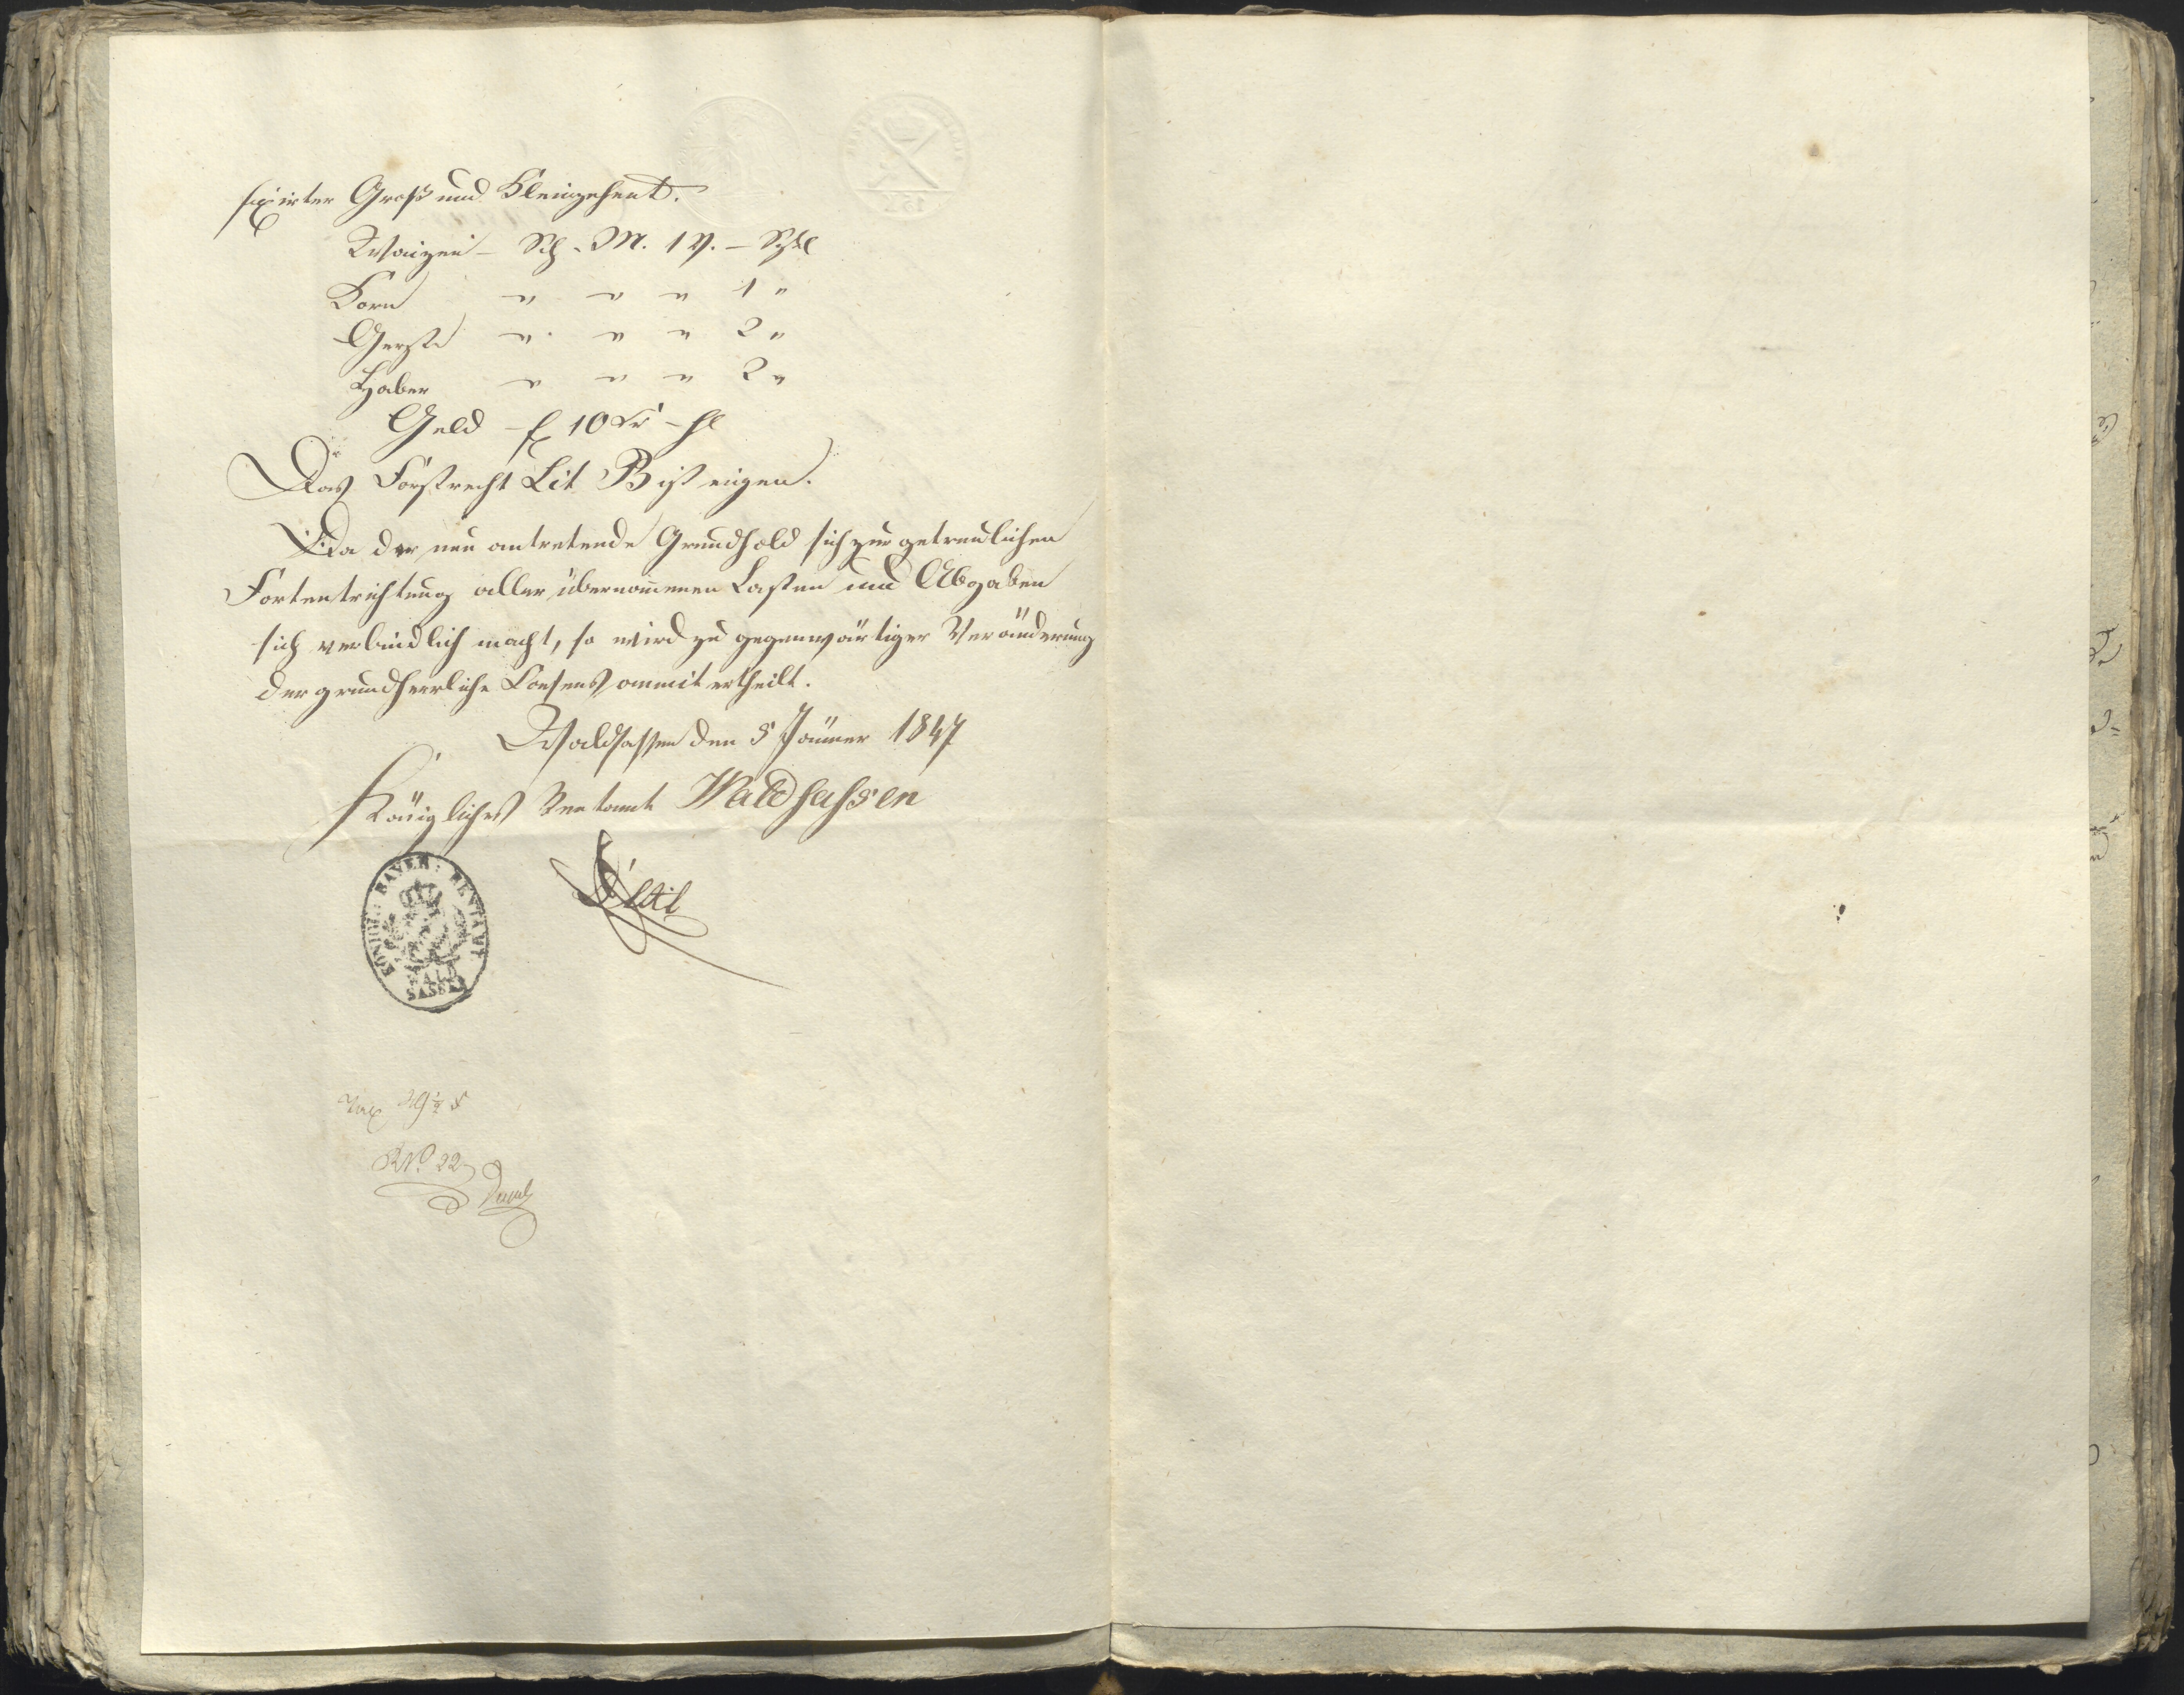 fixirter Groß und Kleinzehent.
Waizen – Sch. – M. 1 V. – Sztl
Korn " " " 1 "
Gerste " " " 2 "
Haber " " " 2 "
Geld – f 10 kr – hl
Das Forstrecht Lit B ist eigen.
Da der neu antretende Grundhold sich zur getreulichen
Fortentrichtung aller übernom̄enen Lasten und Abgaben
sich verbindlich macht, so wird zu gegenwärtiger Veränderung
der grundherrliche Consens anmit ertheilt.
Waldsassen den 5 Jänner 1847
Königliches Rentamt Waldsassen
KÖNIGL: BAYER: RENTAMT
WALD
SASSEN
Tax 29½ x
RNo. 22